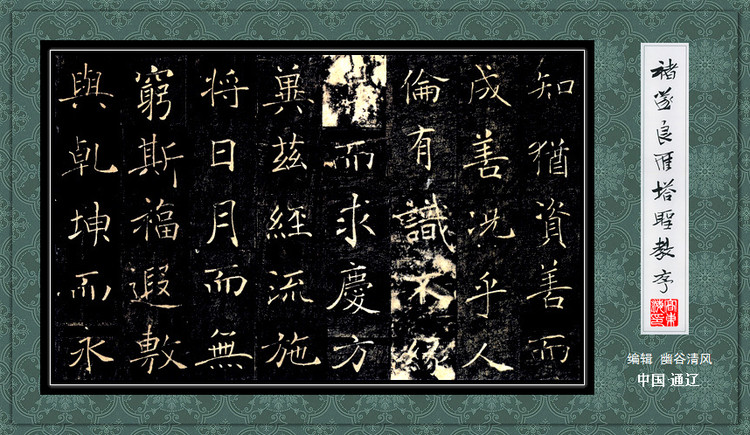 知猶資善而
成善況乎人
倫有識不緣
而求慶方
冀茲經流施
将日月而無
窮斯福遐敷
與乾坤而永
褚遂良雁塔聖教序
编辑 幽谷清风
中国·通辽